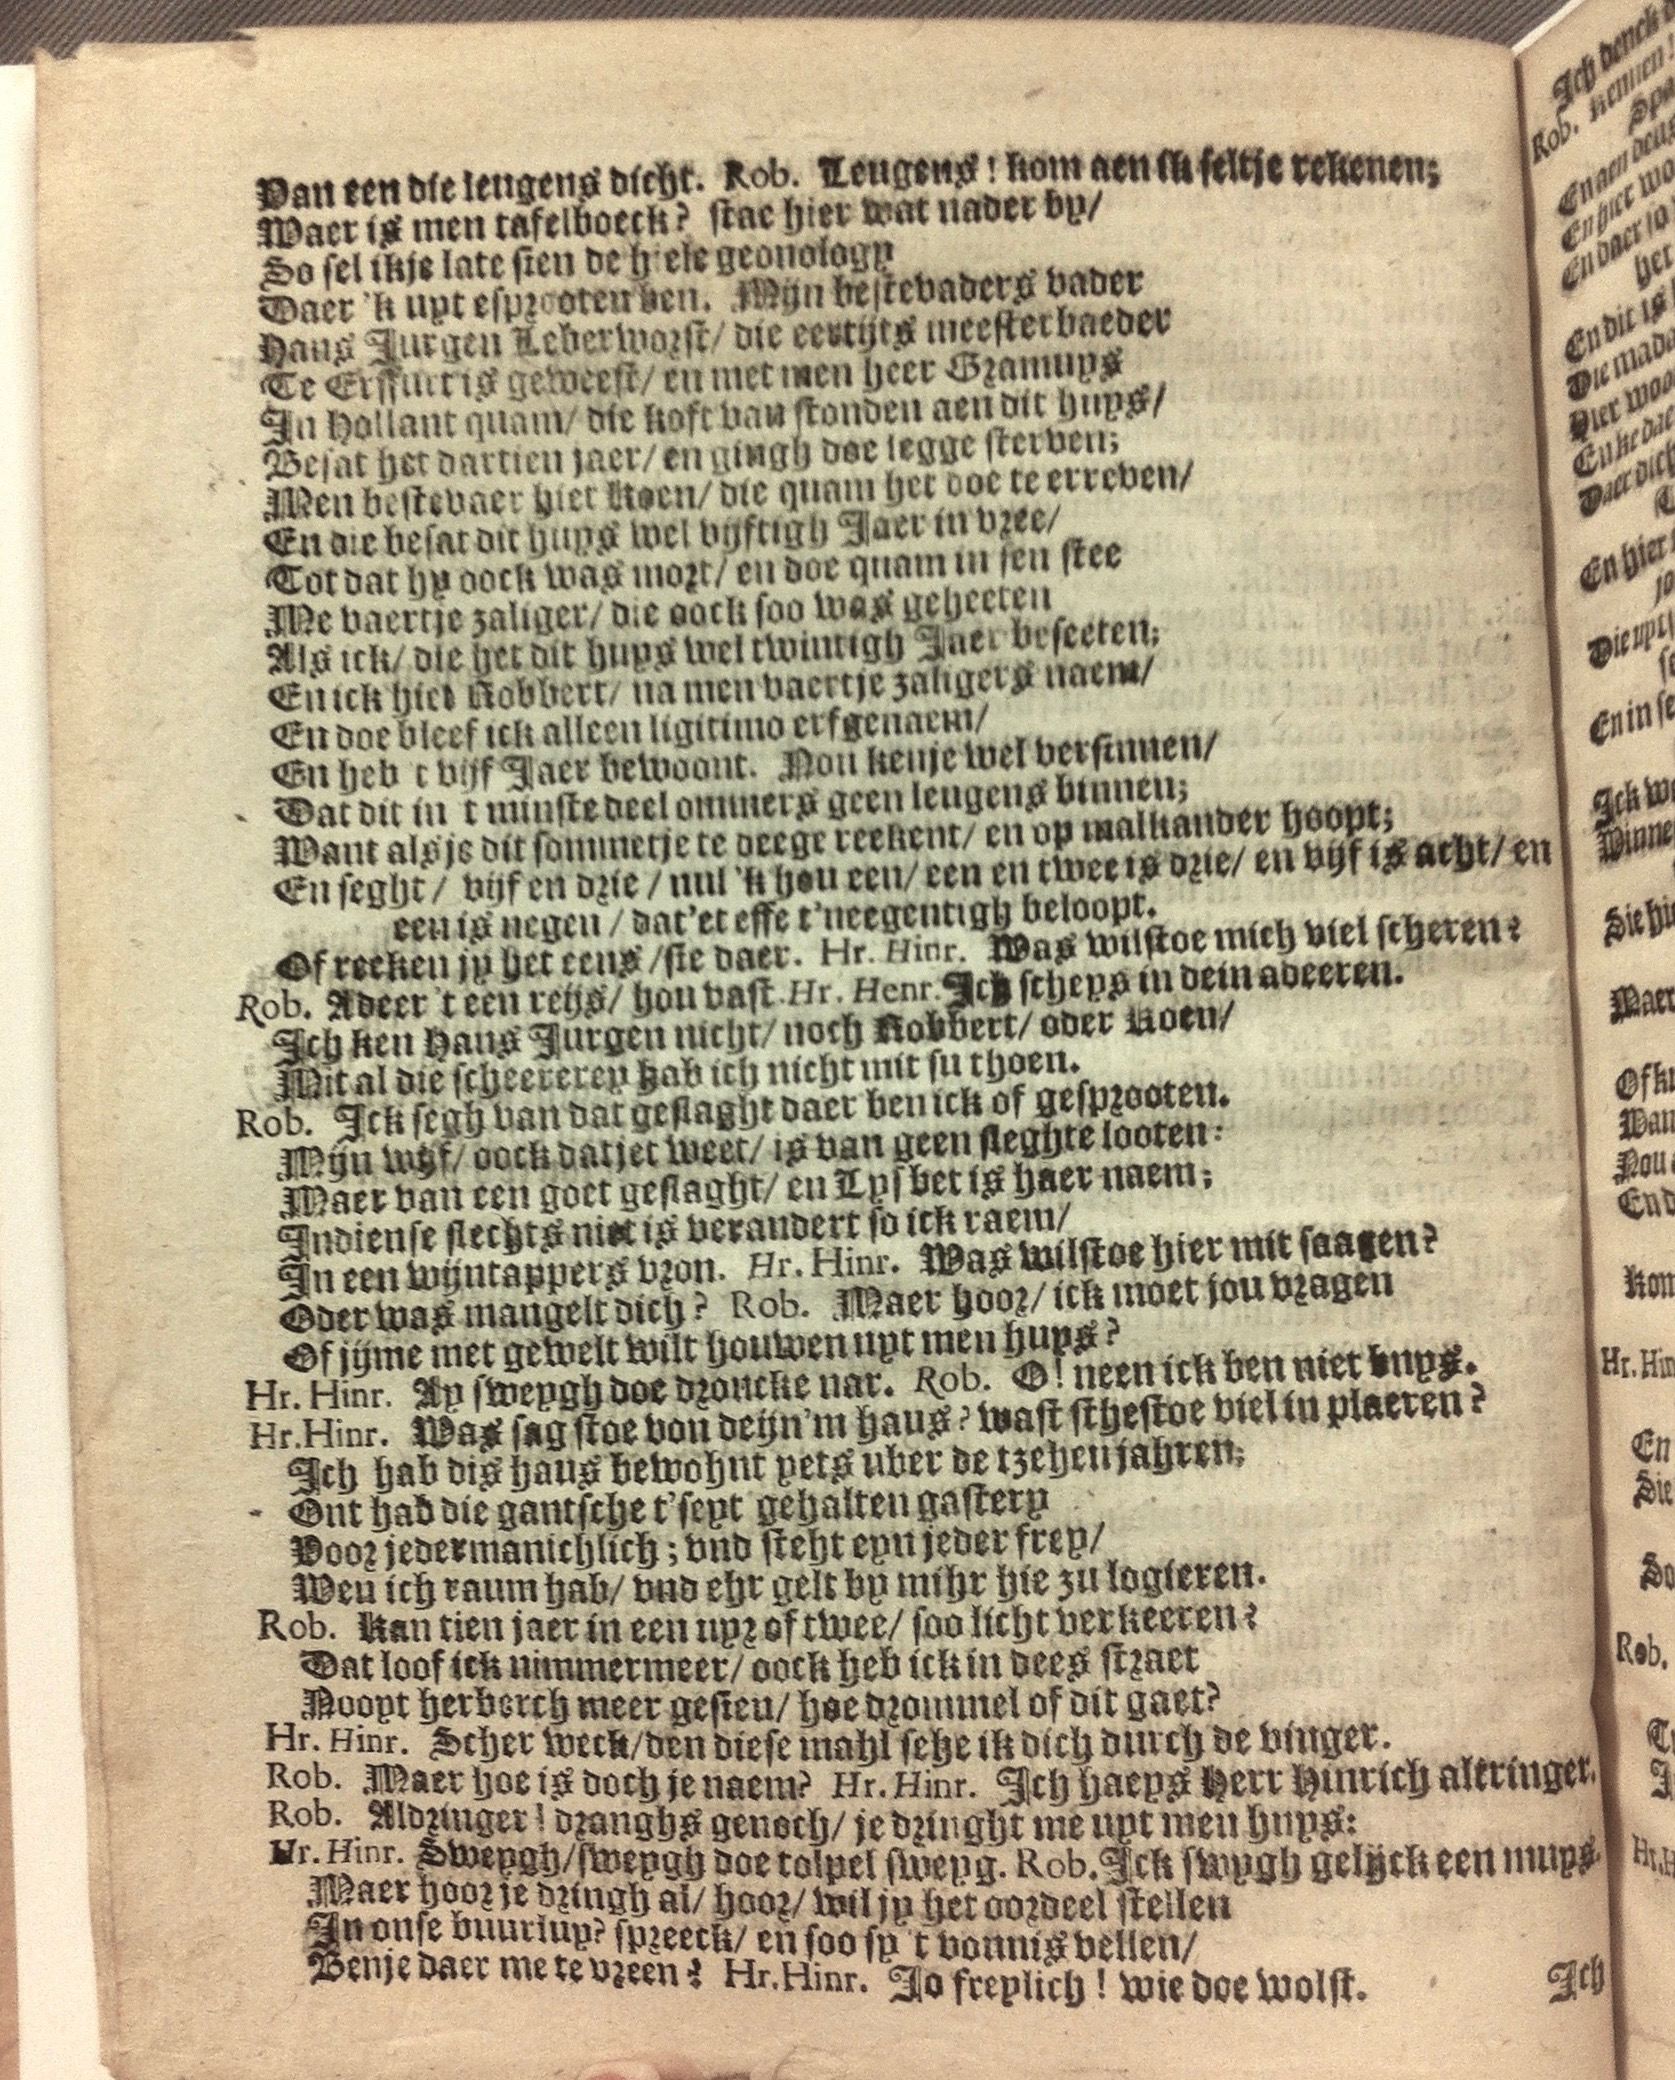 Van een die leugens dicht. Rob. Leugens! kom aen ik seltje rekenen;
Waer is men tafelboeck? stae hier wat nader by/
So sel ikje late sien de hiele geonology
Daer 'k uyt esprooten ben. Mijn bestevaders vader
Hans Jurgen Leberworst/ die eertijts meester baeder
Te Erffurt is geweest/ en met men heer Gramuys
In Hollant quam/ die koft van stonden aen dit huys/
Besat het dartien jaer/ en gingh doe legge sterven;
Men bestevaer hiet Koen/ die quam het doe te erreven/
En die besat dit huys wel vijftigh Jaer in vree/
Tot dat hy oock was mort/ en doe quam in sen stee
Me vaertje zaliger/ die oock soo was geheeten
Als ick/ die het dit huys wel twintigh Jaer beseeten;
En ick hiet Robbert/ na men vaertje zaligers naem/
En doe bleef ick alleen ligitimo erfgenaem/
En heb t vijf Jaer bewoont. Nou kenje wel versinnen/
Dat dit in 't minste deel ommers geen leugens binnen;
Want alsje dit sommetje te deege reekent/ en op malkander hoopt;
En seght / vijf en drie / nul 'k hou een/ een en twee is drie/ en vijf is acht/ en
een is negen / dat'et effe t'neegentigh beloopt.
Of reeken jy het eens /sie daer. Hr. Hinr. Was wilstoe mich viel scheren?
Rob. Adeer 't een reijs/ hou vast. Hr. Henr. Ich scheys in dein adeeren.
Ich ken Hans Jurgen nicht/ noch Robbert/ oder Koen/
Mit al die scheererey hab ich nicht mit su thoen.
Rob. Ick segh van dat geslaght daer ben ick of gesprooten.
Mijn wijf/ oock datjet weet/ is van geen sleghte looten:
Maer van een goet geslaght/ en Lysbet is haer naem;
Indiense slechts niet is verandert so ick raem/
In een wijntappers vrou. Hr. Hinr. Was wilstoe hier mit saagen?
Oder was mangelt dich? Rob. Maer hoor/ ick moet jou vragen
Of jyme met gewelt wilt houwen uyt men huys?
Hr. Hinr. Ay sweygh doe droncke nar. Rob. O! neen ick ben niet buys.
Hr. Hinr. Was sag stoe von deijn'm haus? wast sthestoe viel in plaeren?
Ich hab dis haus bewohnt yets uber de tzehen jahren;
Ont hab die gantsche t'seyt gehalten gastery
Voor jedermanichlich; vnd steht eyn jeder frey/
Wen ich raum hab/ vnd ehr gelt by mihr hie zu logieren.
Rob. Kan tien jaer in een uyr of twee/ soo licht verkeeren?
Dat loof ick nimmermeer/ oock heb ick in dees straet
Nooyt herberch meer gesien/ hoe drommel of dit gaet?
Hr. Hinr. Scher weck/den diese mahl sehe ik dich durch de vinger.
Rob. Maer hoe is doch je naem? Hr. Hinr. Ich haeys Herr Hinrich altringer.
Rob. Aldringer! dranghs genoch/ je dringht me uyt men huys:
Hr. Hinr. Sweygh/sweygh doe tolpel sweyg. Rob. Ick swygh gelijck een muys.
Maer hoor je dringh al/ hoor/ wil jy het oordeel stellen
In onse buurluy? spreeck/ en soo sy 't vonnis vellen/
Benje daer me te vreen? Hr. Hinr. Jo freylich! wie doe wolst.
Ich